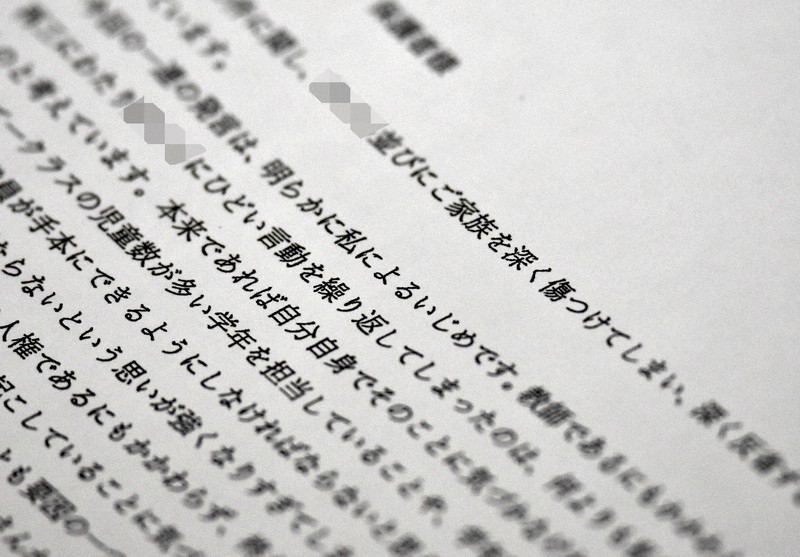 保護者様
件に関し、
並びにご家族を深く傷つけてしまい、深く反省
ています。
今回の一連の発言は、明らかに私によるいじめです。教師であるにもかかわ
再三にわたり
にひどい言動を繰り返してしまったのは、何よりも
のと考えています。本来であれば自分自身でそのことに気づかな
ークラスの児童数が多い学年を担当していることや、学
員が手本にできるようにしなければならないと思
らないという思いが強くなりすぎてしま
人権であるにもかかわらず、
起こしていることに気づ
も要因の一